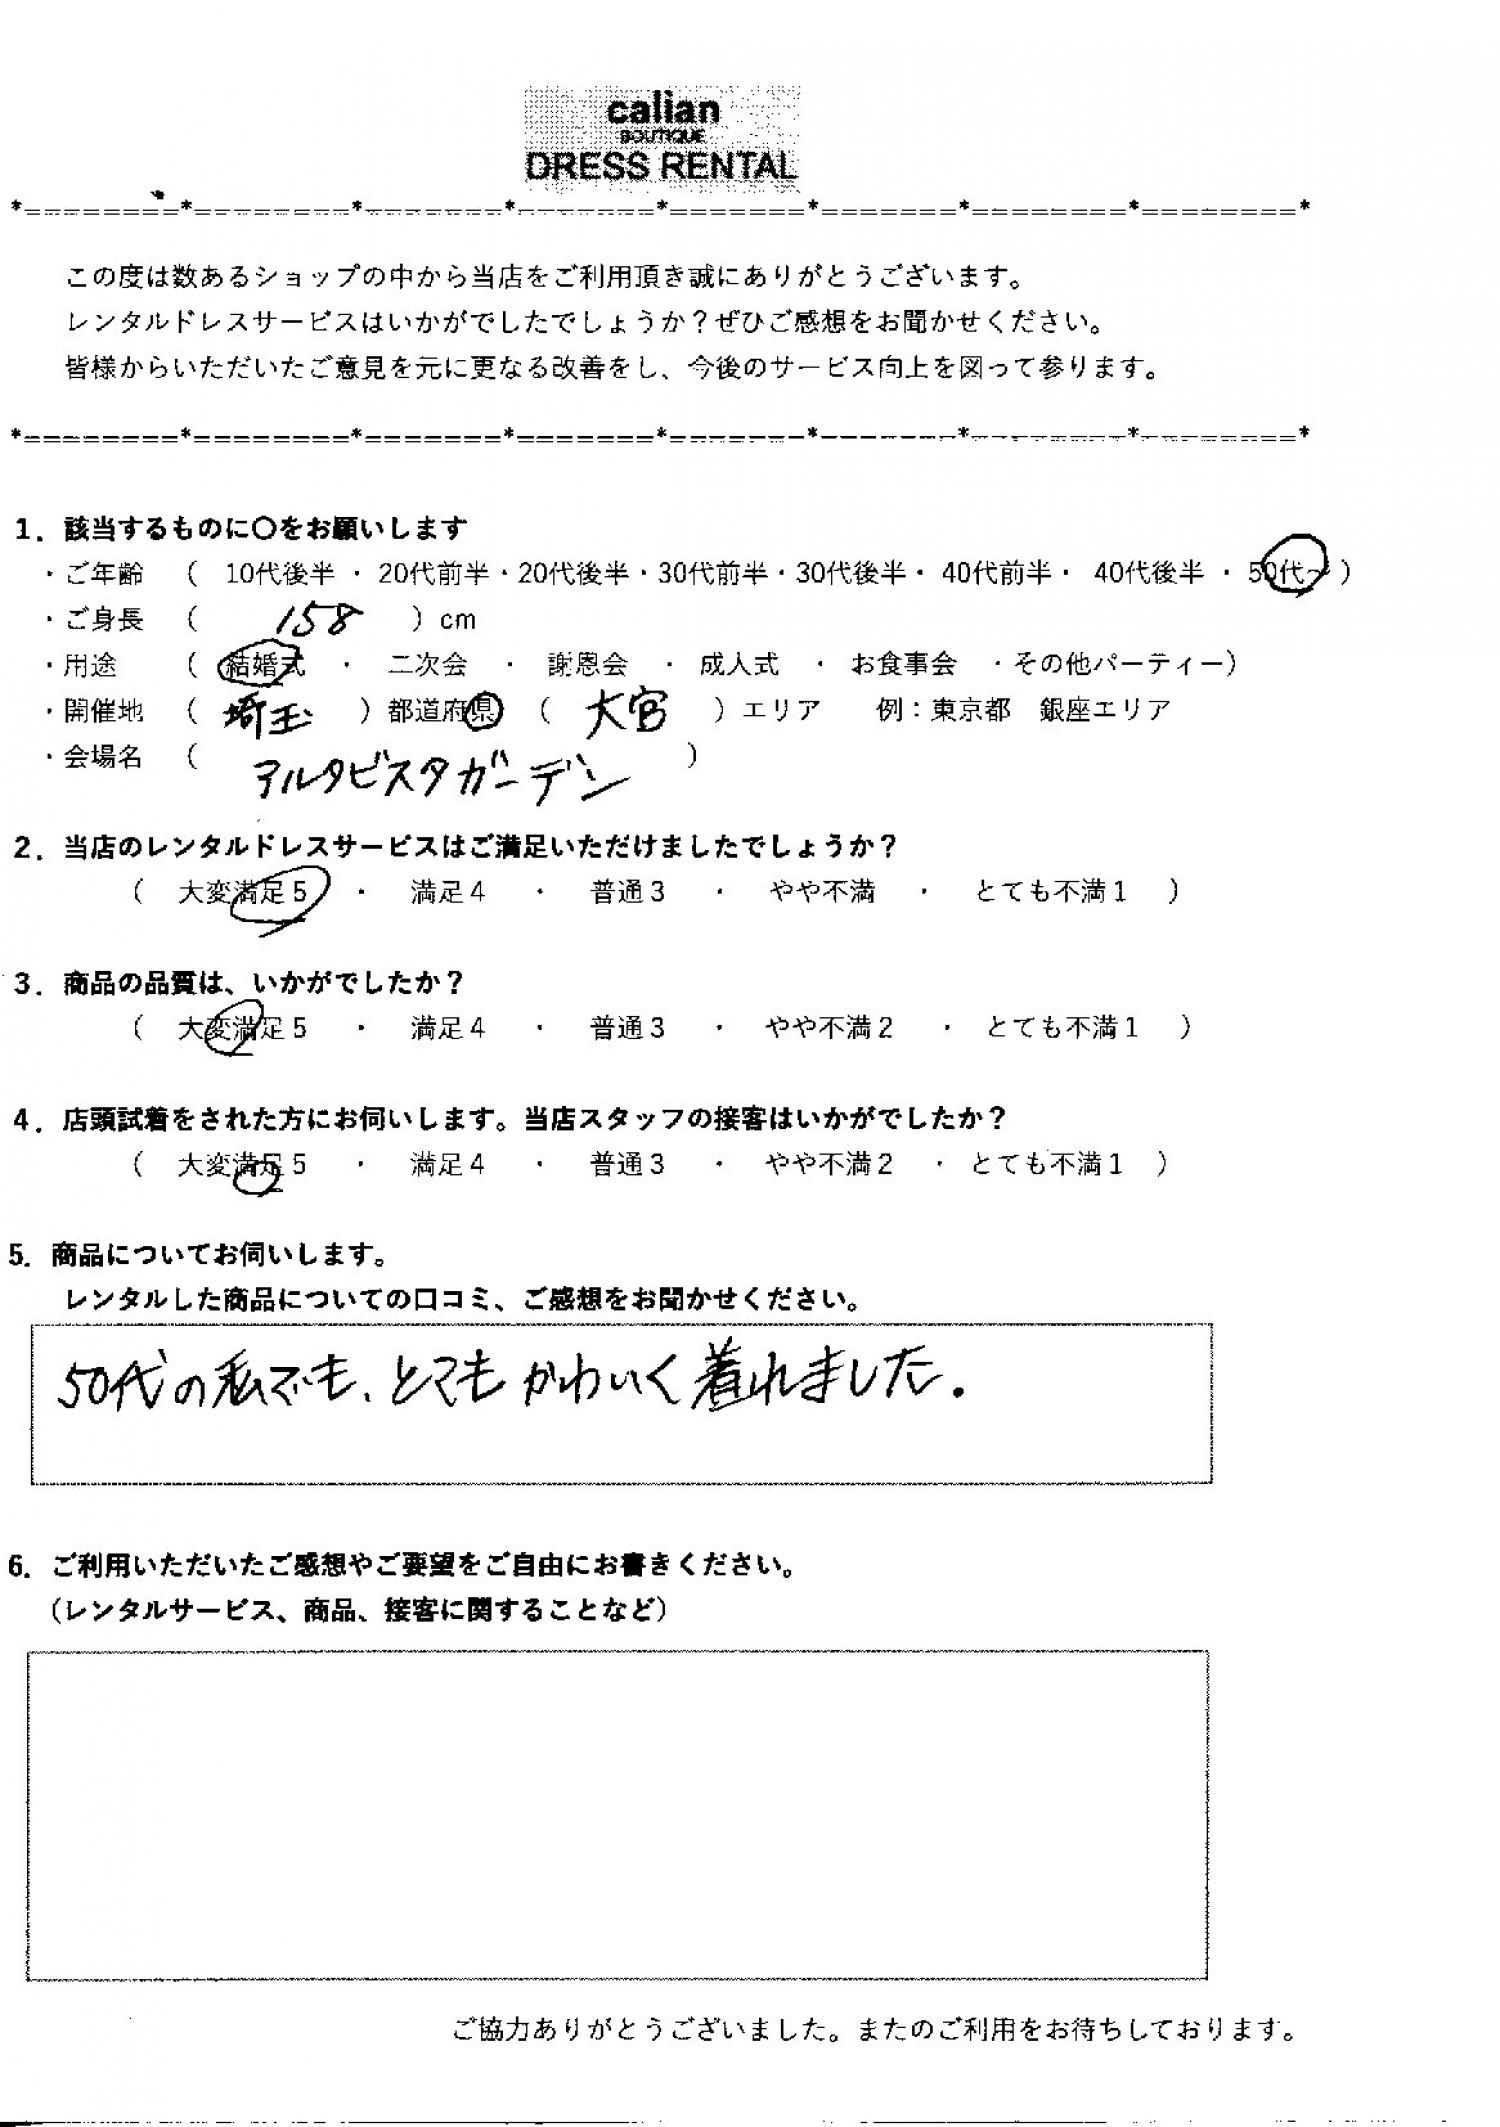 calian
BOUTIQUE
DRESS RENTAL
*========*========*=======*=======*=======*=======*========*========*
この度は数あるショップの中から当店をご利用頂き誠にありがとうございます。
レンタルドレスサービスはいかがでしたでしょうか？ぜひご感想をお聞かせください。
皆様からいただいたご意見を元に更なる改善をし、今後のサービス向上を図って参ります。
*========*========*=======*=======*=======*=======*========*========*
1．該当するものに〇をお願いします
・ご年齢 （ 10代後半 ・ 20代前半・20代後半・30代前半・30代後半・ 40代前半・ 40代後半 ・ 50代～ ）
・ご身長 （ 158 ）cm
・用途 （ 結婚式 ・ 二次会 ・ 謝恩会 ・ 成人式 ・ お食事会 ・その他パーティー）
・開催地 （ 埼玉 ）都道府県 （ 大宮 ）エリア 例：東京都 銀座エリア
・会場名 （ アルタビスタガーデン ）
2．当店のレンタルドレスサービスはご満足いただけましたでしょうか？
（ 大変満足５ ・ 満足４ ・ 普通３ ・ やや不満 ・ とても不満１ ）
3．商品の品質は、いかがでしたか？
（ 大変満足５ ・ 満足４ ・ 普通３ ・ やや不満２ ・ とても不満１ ）
4．店頭試着をされた方にお伺いします。当店スタッフの接客はいかがでしたか？
（ 大変満足５ ・ 満足４ ・ 普通３ ・ やや不満２ ・ とても不満１ ）
5．商品についてお伺いします。
レンタルした商品についての口コミ、ご感想をお聞かせください。
50代の私でも、とてもかわいく着れました.
6．ご利用いただいたご感想やご要望をご自由にお書きください。
（レンタルサービス、商品、接客に関することなど）
ご協力ありがとうございました。またのご利用をお待ちしております。